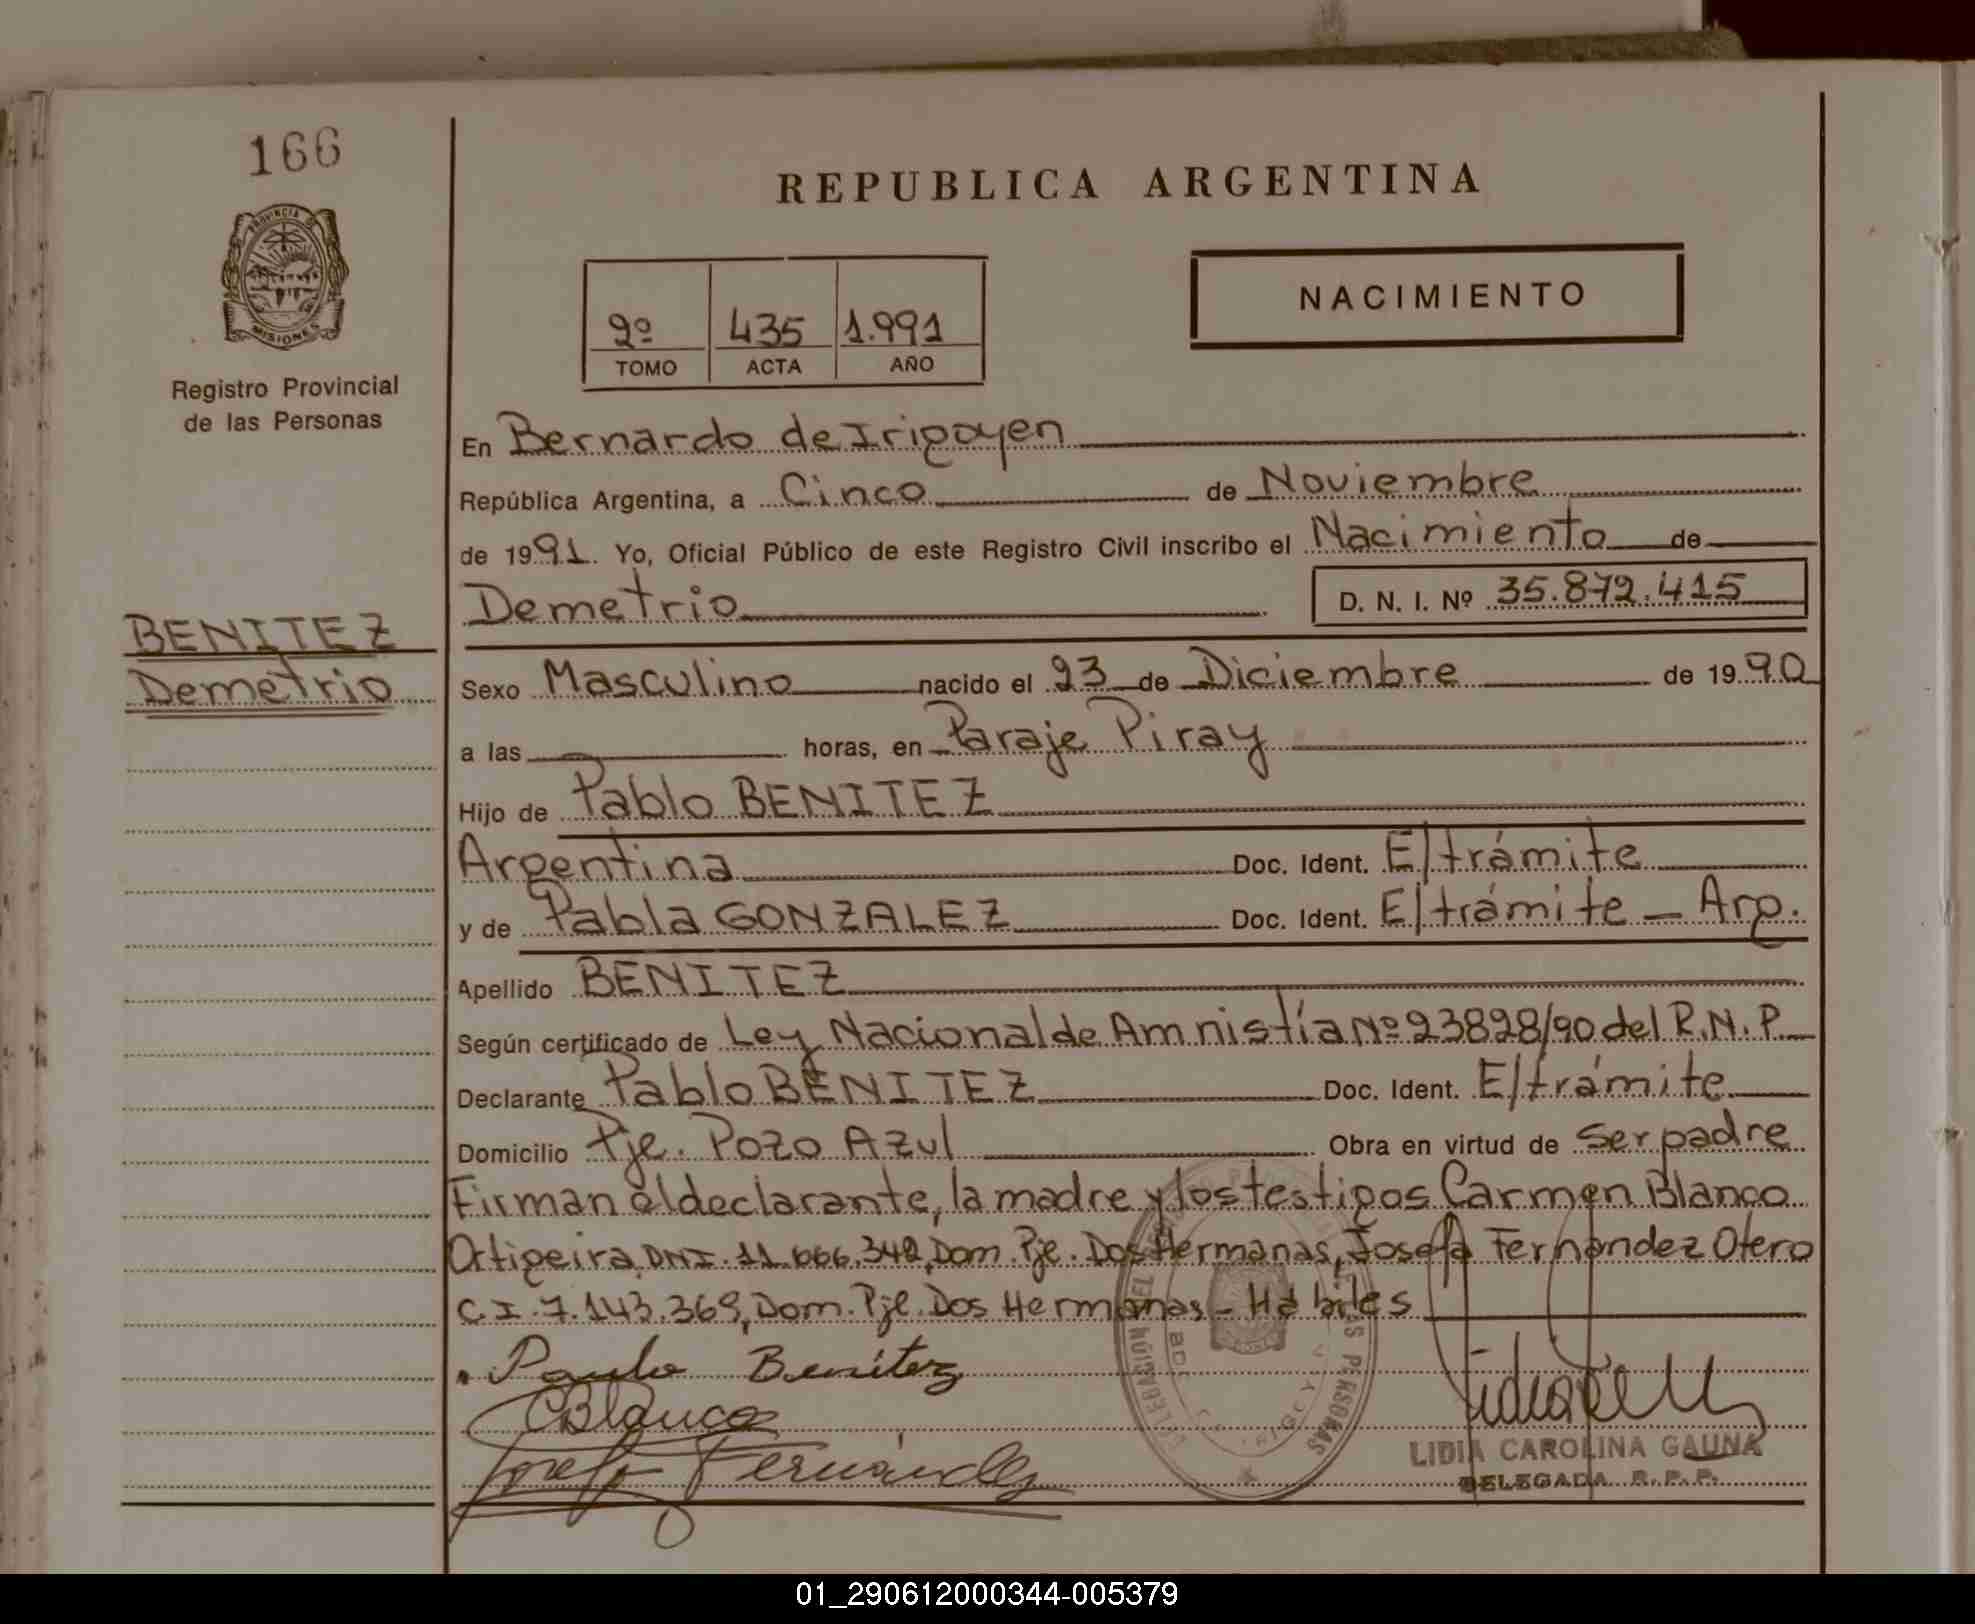 166
REPUBLICA ARGENTINA
PROVINCIA DE
MISIONES
NACIMIENTO
2º 435 1.991
TOMO ACTA AÑO
Registro Provincial
de las Personas
En Bernardo de Irigoyen
República Argentina, a Cinco de Noviembre
de 1991. Yo, Oficial Público de este Registro Civil inscribo el Nacimiento de
Demetrio D. N. I. Nº 35.872.415
BENITEZ
Demetrio
Sexo Masculino nacido el 23 de Diciembre de 1990
a las horas, en Paraje Piray
Hijo de Pablo BENITEZ
Argentina Doc. Ident. E/trámite
y de Pabla GONZALEZ Doc. Ident. E/trámite - Arg.
Apellido BENITEZ
Según certificado de Ley Nacional de Amnistía Nº 23828/90 del R.N.P.
Declarante Pablo BENITEZ Doc. Ident. E/trámite
Domicilio Pje. Pozo Azul Obra en virtud de ser padre
Firman el declarante, la madre y los testigos Carmen Blanco
Ortigeira, DNI. 11.666.342, Dom. Pje. Dos Hermanas, Josefa Fernández Otero
C.I. 7.143.369, Dom. Pje. Dos Hermanas - Hábiles
Paulo Benítez
CBlanco
Josefa Fernández
LIDIA CAROLINA GAUNA
DELEGADA R.P.P.
01_290612000344-005379